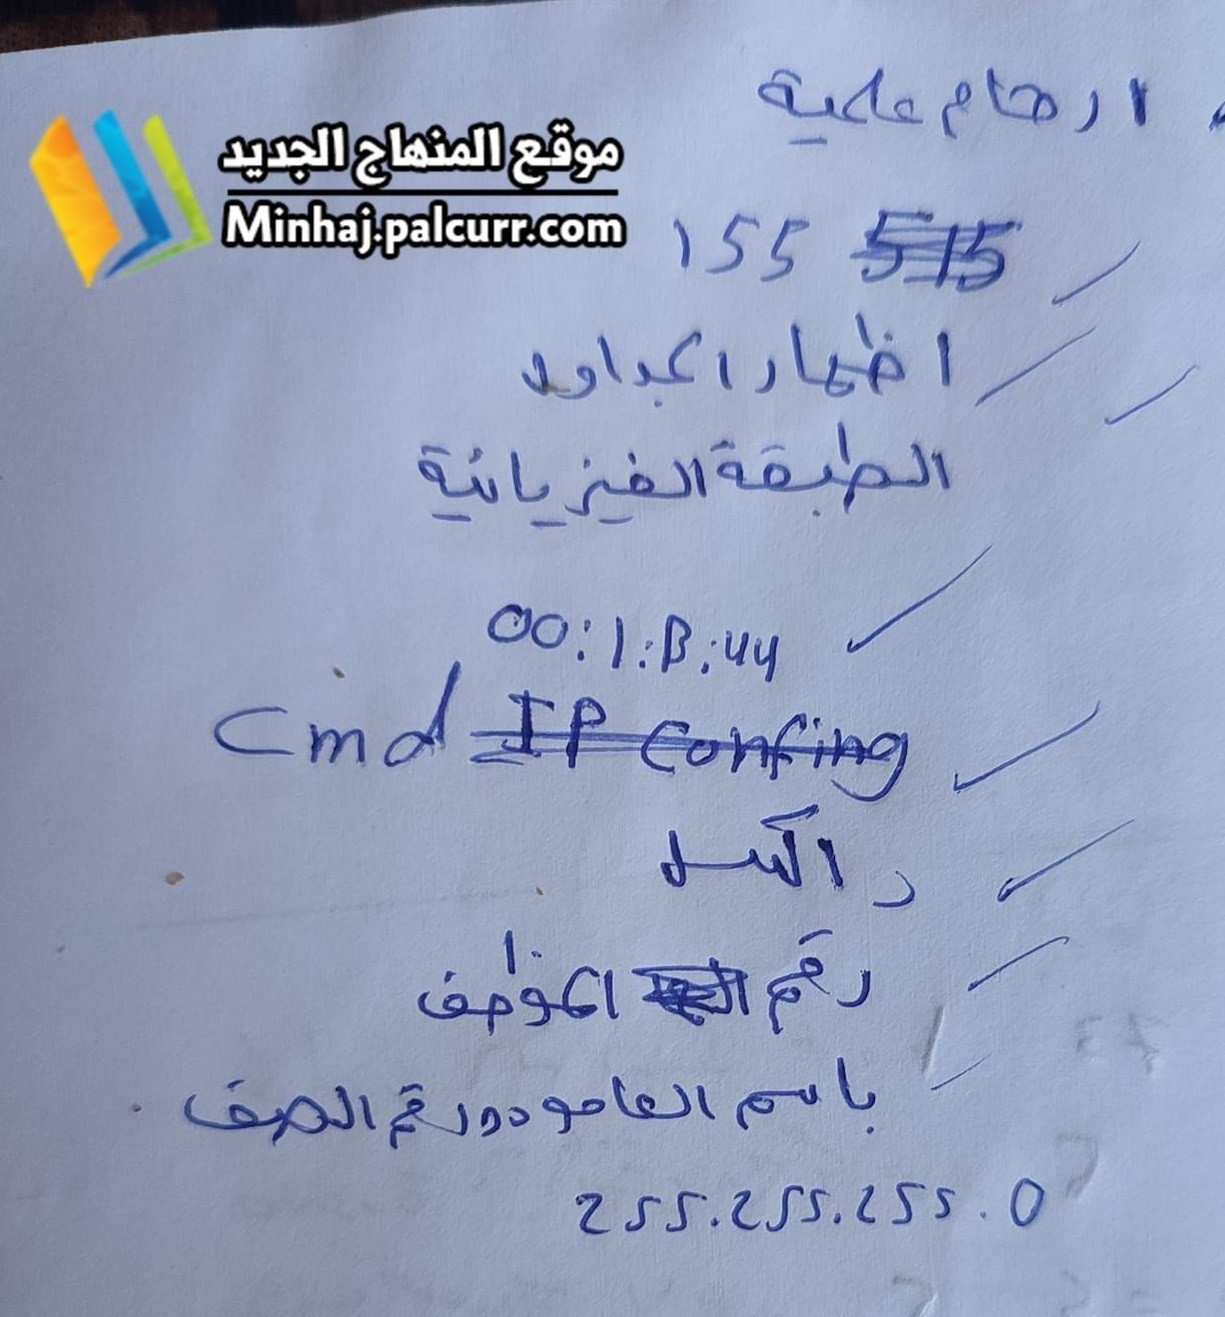 ارحام علمية
موقع المنهاج الجديد
Minhaj.palcurr.com
155 515
اظهار الجداول
الطبقة الفيزيائية
00:1:B:44
Cmd IP Confing
اكسل
رقم الموظف
باسم العامود ورقم الصف
255.255.255.0